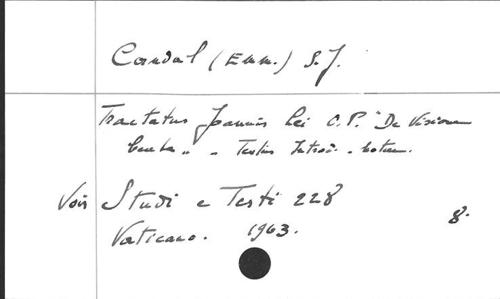 Candal (Emm.) S.J.
Tractatus Joannis Lei O.P. "De Visione
beata" - Textus Introd. - notae.
Voir Studi e Testi 228
Vaticano. 1963. 8.